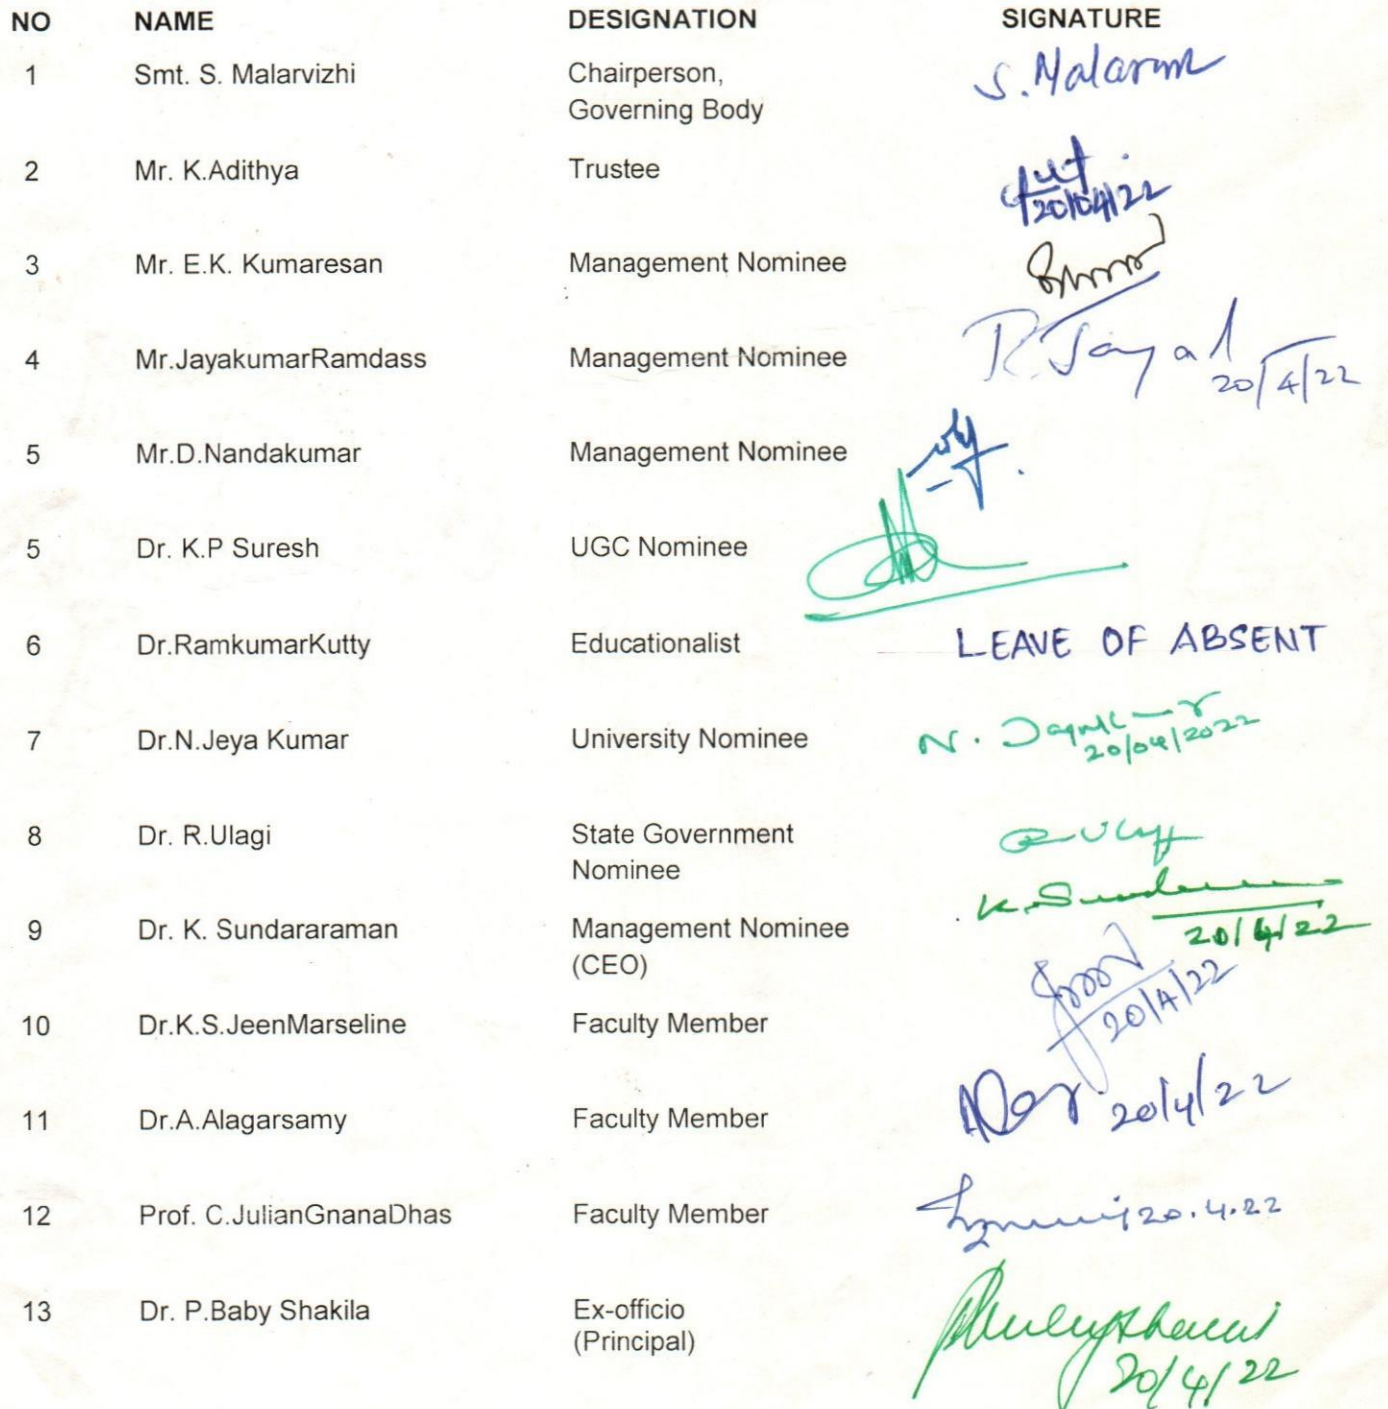 NO NAME DESIGNATION SIGNATURE
1 Smt. S. Malarvizhi Chairperson, S. Malarvizhi
Governing Body
2 Mr. K.Adithya Trustee
20/04/22
3 Mr. E.K. Kumaresan Management Nominee
4 Mr.JayakumarRamdass Management Nominee R. Jayal
20/4/22
5 Mr.D.Nandakumar Management Nominee
5 Dr. K.P Suresh UGC Nominee
6 Dr.RamkumarKutty Educationalist LEAVE OF ABSENT
7 Dr.N.Jeya Kumar University Nominee N.
20/04/2022
8 Dr. R.Ulagi State Government
Nominee
9 Dr. K. Sundararaman Management Nominee K.
(CEO) 20/4/22
10 Dr.K.S.JeenMarseline Faculty Member 20/4/22
11 Dr.A.Alagarsamy Faculty Member 20/4/22
12 Prof. C.JulianGnanaDhas Faculty Member 20.4.22
13 Dr. P.Baby Shakila Ex-officio
(Principal) 20/4/22